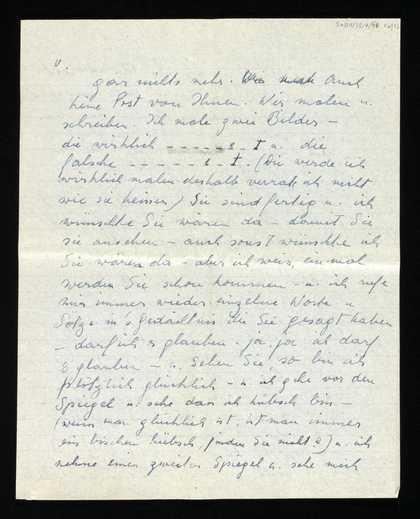 II.
gar nichts mehr. Auch
keine Post von Ihnen. Wir malen u.
schreiben. Ich male zwei Bilder –
die wirklich - - - - - e I u. die
falsche - - - - - e I. (Die werde ich
wirklich malen deshalb verrat ich nicht
wie sie heissen) Sie sind fertig u. ich
wünschte Sie wären da – damit Sie
sie ansehen – auch sonst wünschte ich
Sie wären da – aber ich weis, einmal
werden Sie schon kommen – u. ich rufe
mir immer wieder einzelne Worte u
Sätze in's Gedächtnis die Sie gesagt haben
– darf ich es glauben. ja, ja ich darf
es glauben – u. sehen Sie, so bin ich
plötzlich glücklich – u. ich gehe vor den
Spiegel u. sehe dass ich hübsch bin –
(wenn man glücklich ist, ist man immer
ein bischen hübsch, finden Sie nicht?) u. ich
nehme einen zweiten Spiegel u. sehe mich